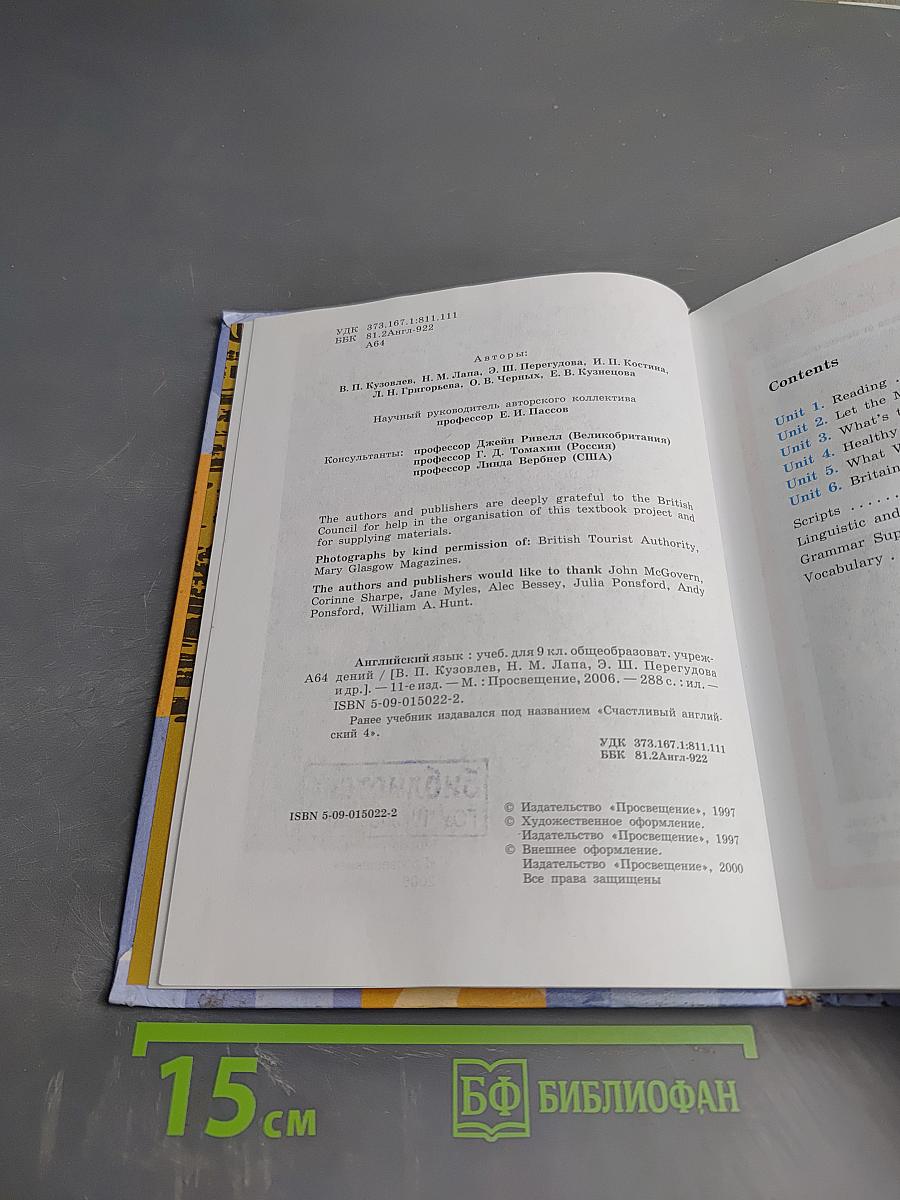 УДК 373.167.1:811.111
ББК 81.2Англ-922
А64
Авторы:
В. П. Кузовлев, Н. М. Лапа, Э. Ш. Перегудова, И. П. Костина,
Л. Н. Григорьева, О. В. Черных, Е. В. Кузнецова
Научный руководитель авторского коллектива
профессор Е. И. Пассов
Консультанты: профессор Джейн Ривелл (Великобритания)
профессор Г. Д. Томахин (Россия)
профессор Линда Вербнер (США)
The authors and publishers are deeply grateful to the British
Council for help in the organisation of this textbook project and
for supplying materials.
Photographs by kind permission of: British Tourist Authority,
Mary Glasgow Magazines.
The authors and publishers would like to thank John McGovern,
Corinne Sharpe, Jane Myles, Alec Bessey, Julia Ponsford, Andy
Ponsford, William A. Hunt.
Английский язык : учеб. для 9 кл. общеобразоват. учреж-
А64 дений / [В. П. Кузовлев, Н. М. Лапа, Э. Ш. Перегудова
и др.]. — 11-е изд. — М. : Просвещение, 2006. — 288 с. : ил. —
ISBN 5-09-015022-2.
Ранее учебник издавался под названием «Счастливый англий-
ский 4».
УДК 373.167.1:811.111
ББК 81.2Англ-922
ISBN 5-09-015022-2
© Издательство «Просвещение», 1997
© Художественное оформление.
Издательство «Просвещение», 1997
© Внешнее оформление.
Издательство «Просвещение», 2000
Все права защищены
Contents
Unit 1. Reading .
Unit 2. Let the M
Unit 3. What's t
Unit 4. Healthy
Unit 5. What
Unit 6. Britain
Scripts ......
Linguistic and
Grammar Sup
Vocabulary .
15 см
БФ БИБЛИОФАН